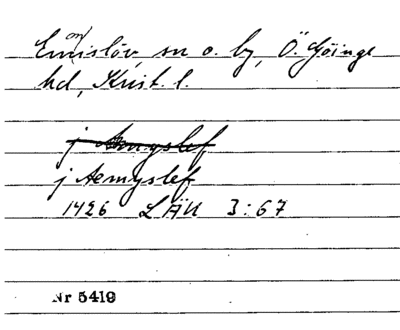 Emislöv, sn o. by, Ö. Göinge
hd, Krist. l.
j Aemyslef
j Aemyslef
1426 LÄU 3:67
Nr 5419